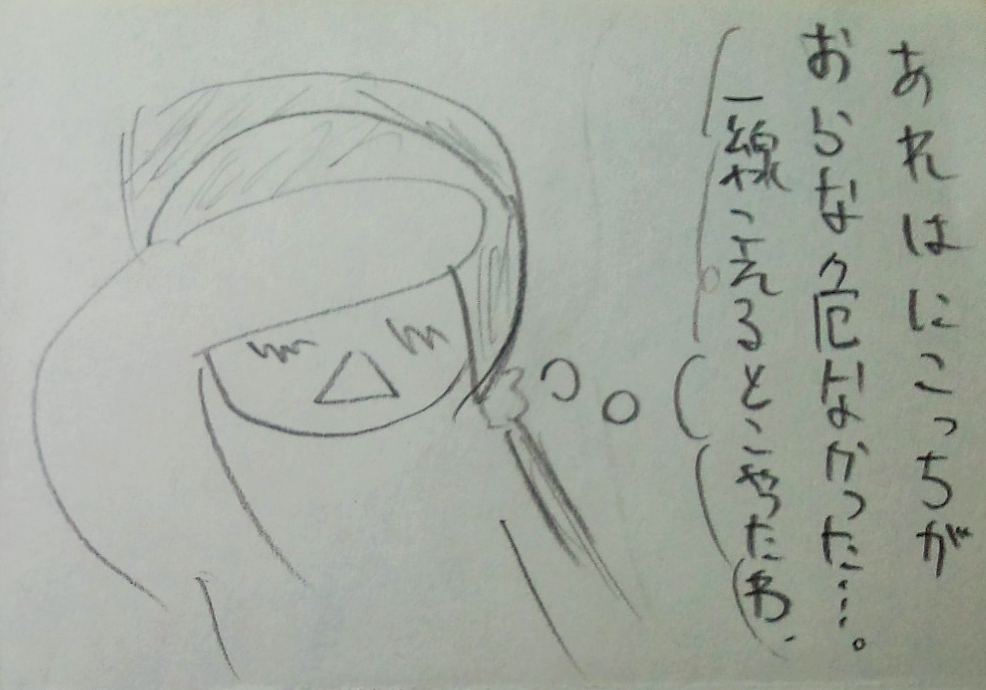 あれはにこっちが
おらな危なかった…。
一線こえるとこやったわ、